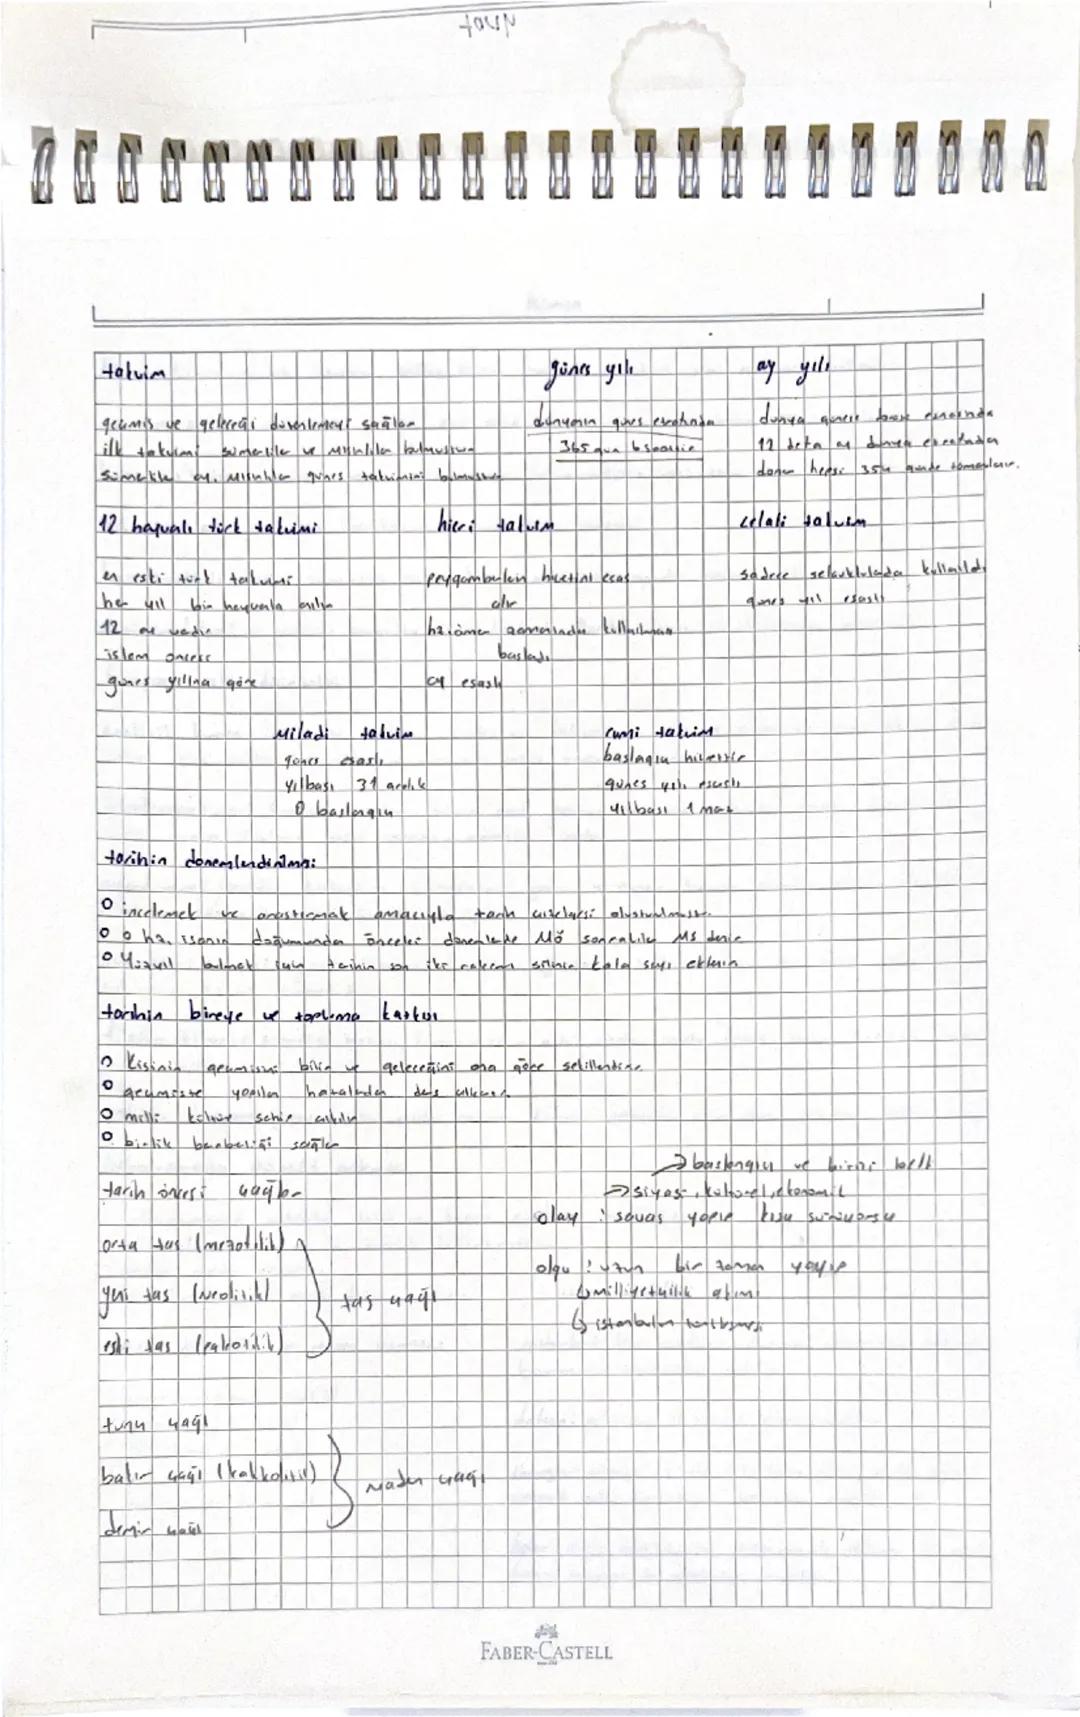 takvim
geçmiş ve geleceği düzenlemeyi sağlar
ilk takvimi sümerliler ve Mısırlılar bulmuştur
Sümerliler ay, Mısırlılar güneş takvimini bulmuştur
güneş yılı
dünyanın güneş etrafında
365 gün 6 saattir
ay yılı
dünya güneşe
12 defa ay dünya etrafında
döner hepsi 354 günde tamamlanır.
12 hayvanlı türk takvimi
en eski türk takvimi
her yıl bir hayvanla anılır
12 ay vardır
islam öncesi
güneş yılına göre
hicri takvim
peygamberin hicretini esas
alır
hz. ömer zamanında kullanılmaya
başladı
ay esaslı
celali takvim
sadece selçuklularda kullanıldı
güneş yıl esaslı
Miladi takvim
güneş esaslı
yılbaşı 31 aralık
0 başlangıç
rumi takvim
başlangıcı hicrettir
güneş yılı esaslı
yılbaşı 1 mart
tarihin dönemlendirilmesi
o incelemek ve araştırmak amacıyla tarih çizelgesi oluşturulmuştur.
o hz. isanın doğumundan önceki dönemlerde MÖ sonrakiler MS denir
o Yüzyıl bulmak için tarihin son iki rakamı silinir kala sayı eklenir
tarihin bireye ve topluma katkısı
o Kişinin geçmişini bilir ve geleceğini ona göre şekillendirir.
o geçmişte yapılan hatalardan ders çıkarır.
o milli kültüre sahip çıkılır
o birlik beraberliği sağlar
tarih öncesi çağlar
orta taş (mezolitik)
yeni taş (Neolitik)
eski taş (paleolitik)
taş çağı
→ başlangıcı ve bitişi belli
→ siyasi, kültürel, ekonomik
olay : savaş yapıp kısa sürüyorsa
olgu : uzun bir zaman yayıp
↳ milliyetçilik akımı
↳ istanbulun
tunç çağı
bakır çağı (kalkolitik)
demir çağı
Maden çağı
FABER-CASTELL